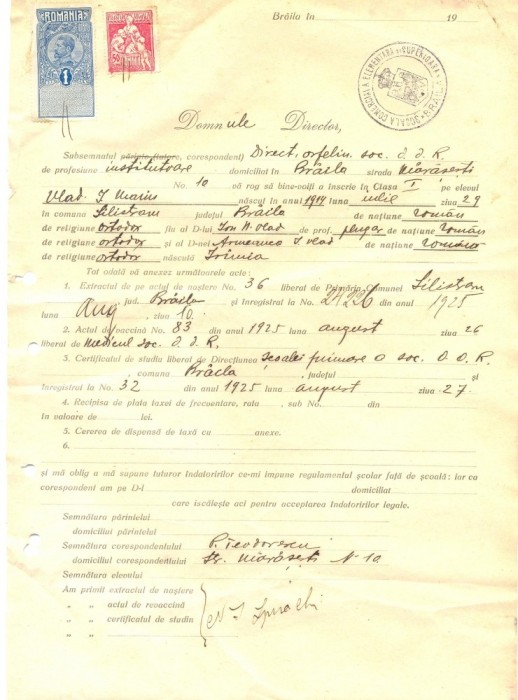 ROMÂNIA
1
Brăila în 19
ȘCOALA COMERCIALĂ ELEMENTARĂ și SUPERIOARĂ BRĂILA
Domnule Director,
Subsemnatul părinte, tutore, corespondent) Direct. orfelin. soc. O. O. R.
de profesiune institutoare domiciliat în Brăila strada Mărășești
No. 10 vă rog să bine-voiți a înscrie în Clasa I pe elevul
Vlad I Marin născut în anul 1914 luna iulie ziua 29
în comuna Silistraru județul Brăila de națiune român
de religiune ortodox fiu al D-lui Ion N. Vlad de prof. plugar de națiune român
de religiune ortodox și al D-nei I. Vlad de națiune română
de religiune ortodox născută Irimia
Tot odată vă anexez următoarele acte :
1. Extractul de pe actul de naștere No. 36 liberat de Primăria Comunei Silistraru
jud. Brăila și înregistrat la No. din anul 1925
luna Aug ziua 10.
2. Actul de vaccină No. 83 din anul 1925 luna august ziua 26
liberat de medicul soc. O. O. R.
3. Certificatul de studiu liberat de Direcțiunea școalei primare a soc. O. O. R.
, comuna Brăila , județul și
înregistrat la No. 32 din anul 1925 luna august ziua 27.
4. Recipisa de plata taxei de frecuentare, rata sub No. din
în valoare de lei.
5. Cererea de dispensă de taxă cu anexe.
6.
și mă oblig a mă supune tuturor îndatoririlor ce-mi impune regulamentul școlar față de școală: iar ca
corespondent am pe D-l domiciliat
care iscălește aci pentru acceptarea îndatoririlor legale.
Semnătura părintelui
domiciliul părintelui
Semnătura corespondentului P. Teodorescu
domiciliul corespondentului Str. Mărășești N 10
Semnătura elevului
Am primit extractul de naștere
„ „ actul de revaccină
„ „ certificatul de studiu